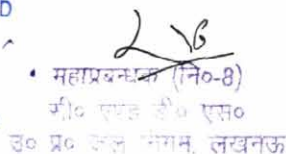 D
महाप्रबन्धक (नि०-8)
सी० एण्ड डी० एस०
उ० प्र० जल निगम, लखनऊ